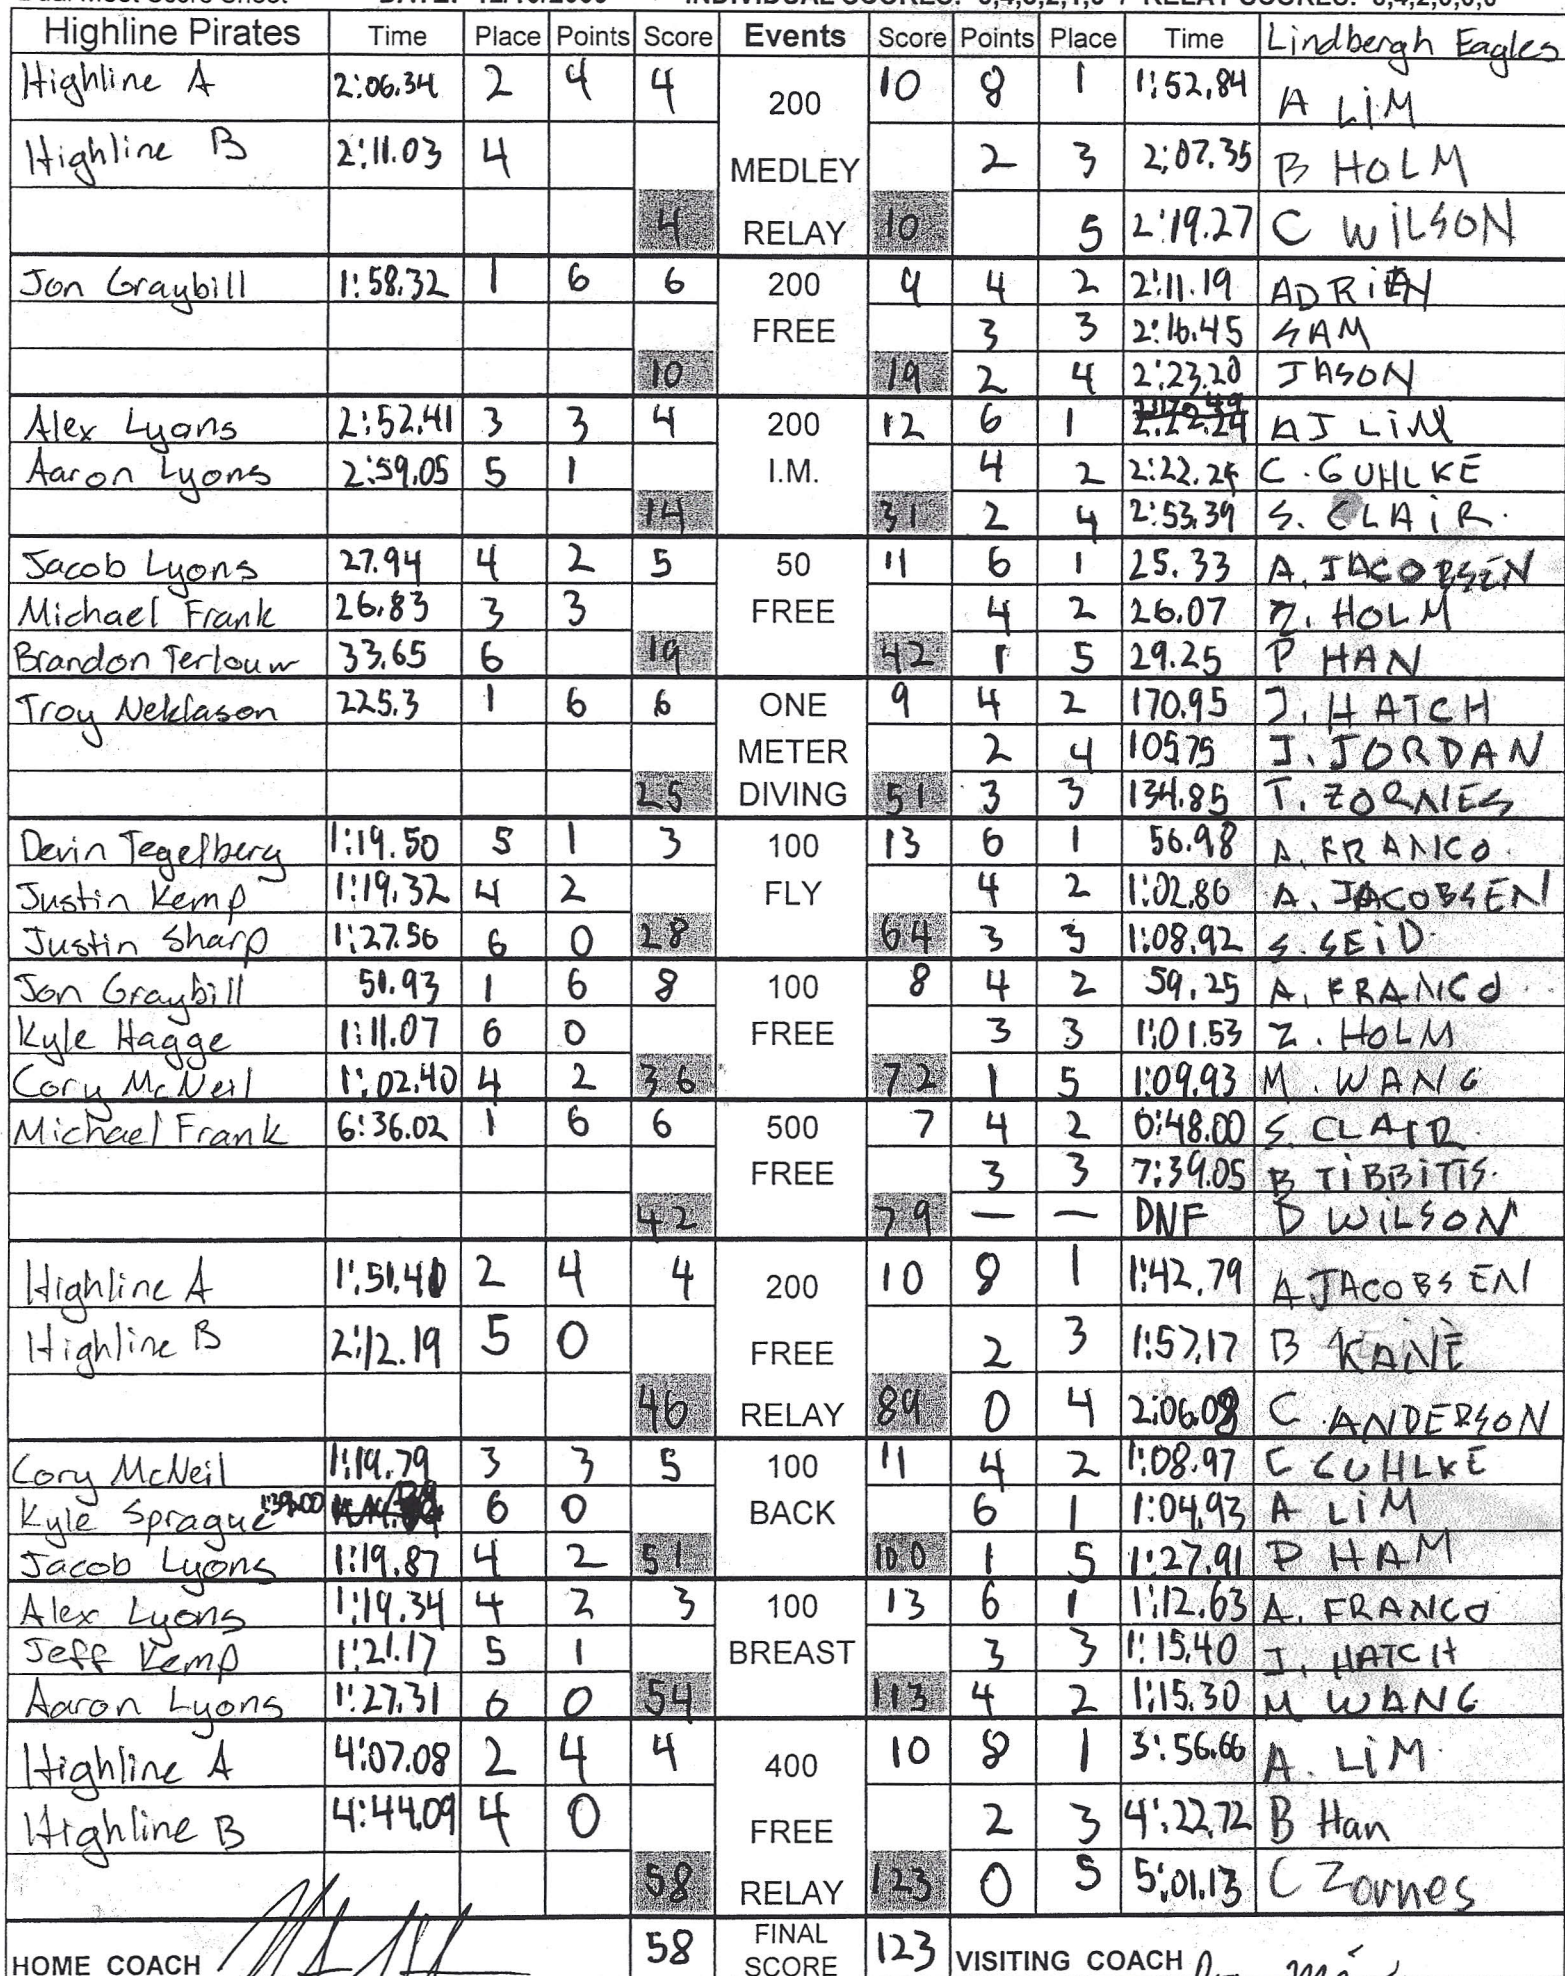 DATE: 12/10/2009 INDIVIDUAL SCORES: 6,4,3,2,1,0 / RELAY SCORES: 8,4,2,0,0,0
Highline Pirates Time Place Points Score Events Score Points Place Time Lindbergh Eagles
Highline A 2:06.34 2 4 4 200 10 8 1 1:52.84 A LiM
Highline B 2:11.03 4 MEDLEY 2 3 2:07.35 B HOLM
4 RELAY 10 5 2:19.27 C WiLSON
Jon Graybill 1:58.32 1 6 6 200 9 4 2 2:11.19 ADRiEN
FREE 3 3 2:16.45 SAM
10 19 2 4 2:23.20 JASON
Alex Lyons 2:52.41 3 3 4 200 12 6 1 AJ LiM
Aaron Lyons 2:59.05 5 1 I.M. 4 2 2:22.24 C. GUHLKE
14 31 2 4 2:53.39 S. CLAiR.
Jacob Lyons 27.94 4 2 5 50 11 6 1 25.33 A. JACOBSEN
Michael Frank 26.83 3 3 FREE 4 2 26.07 Z. HOLM
Brandon Terlouw 33.65 6 19 42 1 5 29.25 P HAN
Troy Neklason 225.3 1 6 6 ONE 9 4 2 170.95 J. HATCH
METER 2 4 105.75 J. JORDAN
25 DIVING 51 3 3 134.85 T. ZORNES
Devin Tegelberg 1:19.50 5 1 3 100 13 6 1 56.98 A. FRANCO.
Justin Kemp 1:19.32 4 2 FLY 4 2 1:02.86 A. JACOBSEN
Justin Sharp 1:27.56 6 0 28 64 3 3 1:08.92 S. SEiD.
Jon Graybill 51.93 1 6 8 100 8 4 2 59.25 A. FRANCO
Kyle Hagge 1:11.07 6 0 FREE 3 3 1:01.53 Z. HOLM
Cory McNeil 1:02.40 4 2 36 72 1 5 1:09.93 M. WANG
Michael Frank 6:36.02 1 6 6 500 7 4 2 6:48.00 S. CLAIR.
FREE 3 3 7:39.05 B TiBBiTTS.
42 79 — — DNF D WiLSON
Highline A 1:51.40 2 4 4 200 10 8 1 1:42.79 A JACOBSEN
Highline B 2:12.19 5 0 FREE 2 3 1:57.17 B KANE
46 RELAY 89 0 4 2:06.08 C ANDERSON
Cory McNeil 1:19.79 3 3 5 100 11 4 2 1:08.97 C GUHLKE
Kyle Sprague 1:39.00 6 0 BACK 6 1 1:04.93 A LiM
Jacob Lyons 1:19.87 4 2 51 100 1 5 1:27.91 P HAM
Alex Lyons 1:19.34 4 2 3 100 13 6 1 1:12.63 A. FRANCO
Jeff Kemp 1:21.17 5 1 BREAST 3 3 1:15.40 J. HATCH
Aaron Lyons 1:27.31 6 0 54 113 4 2 1:15.30 M WANG
Highline A 4:07.08 2 4 4 400 10 8 1 3:56.66 A. LiM.
Highline B 4:44.09 4 0 FREE 2 3 4:22.72 B Han
58 RELAY 123 0 5 5:01.13 C Zornes
HOME COACH 58 FINAL SCORE 123 VISITING COACH